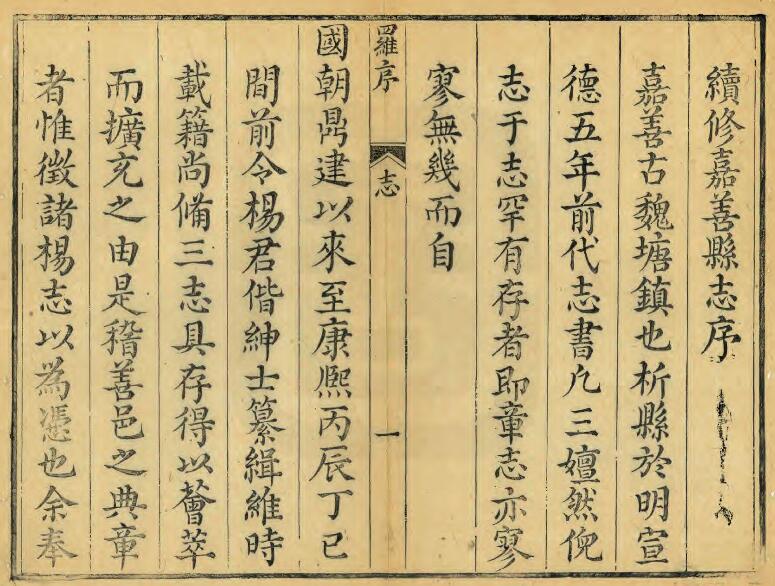 續修嘉善縣志序
嘉善古魏塘鎮也析縣於明宣
德五年前代志書凡三嬗然倪
志于志罕有存者即章志亦寥
寥無幾而自
羅序 志 一
國朝鼎建以來至康熙丙辰丁巳
間前令楊君偕紳士纂緝維時
載籍尚備三志具存得以薈萃
而擴充之由是稽善邑之典章
者惟徵諸楊志以為憑也余奉